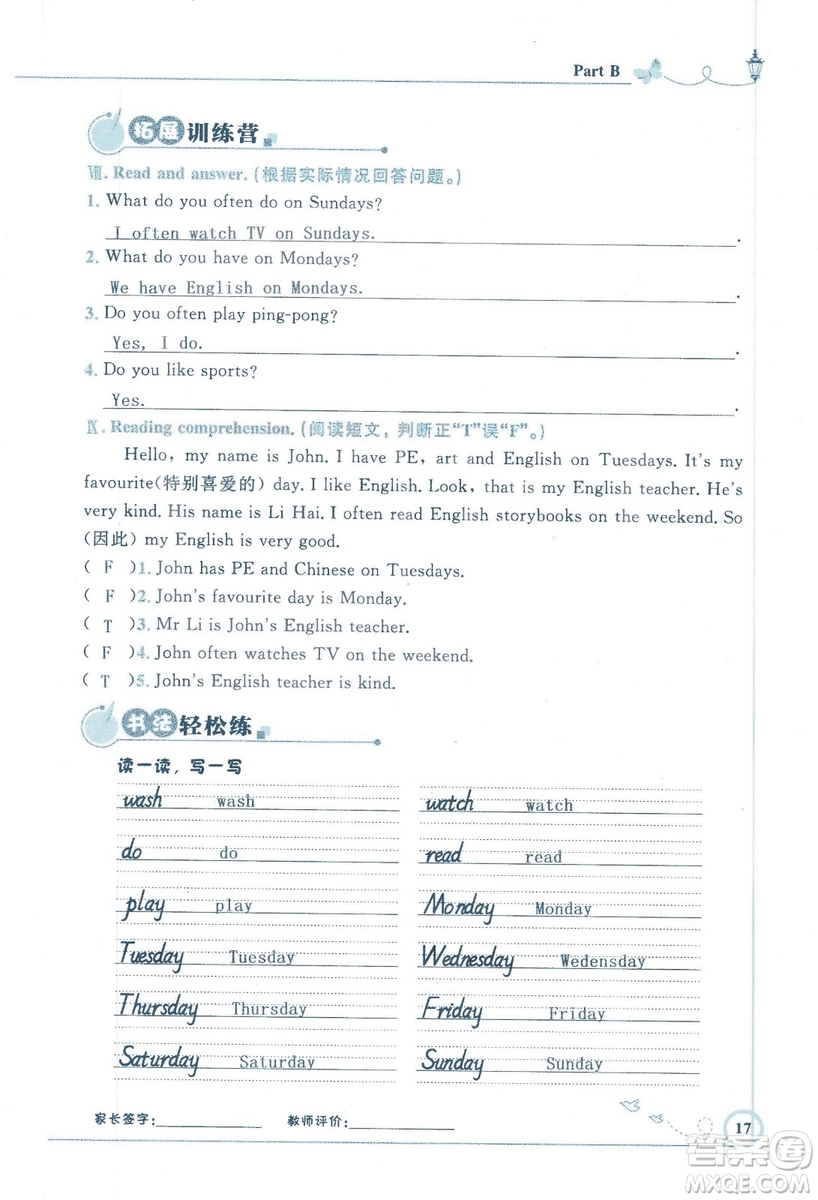 Part B
拓展训练营
Ⅷ. Read and answer. (根据实际情况回答问题。)
1. What do you often do on Sundays?
I often watch TV on Sundays. .
2. What do you have on Mondays?
We have English on Mondays. .
3. Do you often play ping-pong?
Yes, I do. .
4. Do you like sports?
Yes. .
Ⅸ. Reading comprehension. (阅读短文，判断正“T”误“F”。)
Hello, my name is John. I have PE, art and English on Tuesdays. It's my
favourite(特别喜爱的) day. I like English. Look, that is my English teacher. He's
very kind. His name is Li Hai. I often read English storybooks on the weekend. So
(因此) my English is very good.
( F )1. John has PE and Chinese on Tuesdays.
( F )2. John's favourite day is Monday.
( T )3. Mr Li is John's English teacher.
( F )4. John often watches TV on the weekend.
( T )5. John's English teacher is kind.
书法轻松练
读一读，写一写
wash wash watch watch
do do read read
play play Monday Monday
Tuesday Tuesday Wednesday Wedensday
Thursday Thursday Friday Friday
Saturday Saturday Sunday Sunday
家长签字:____________ 教师评价:____________
17
答案圈
MXQE.COM